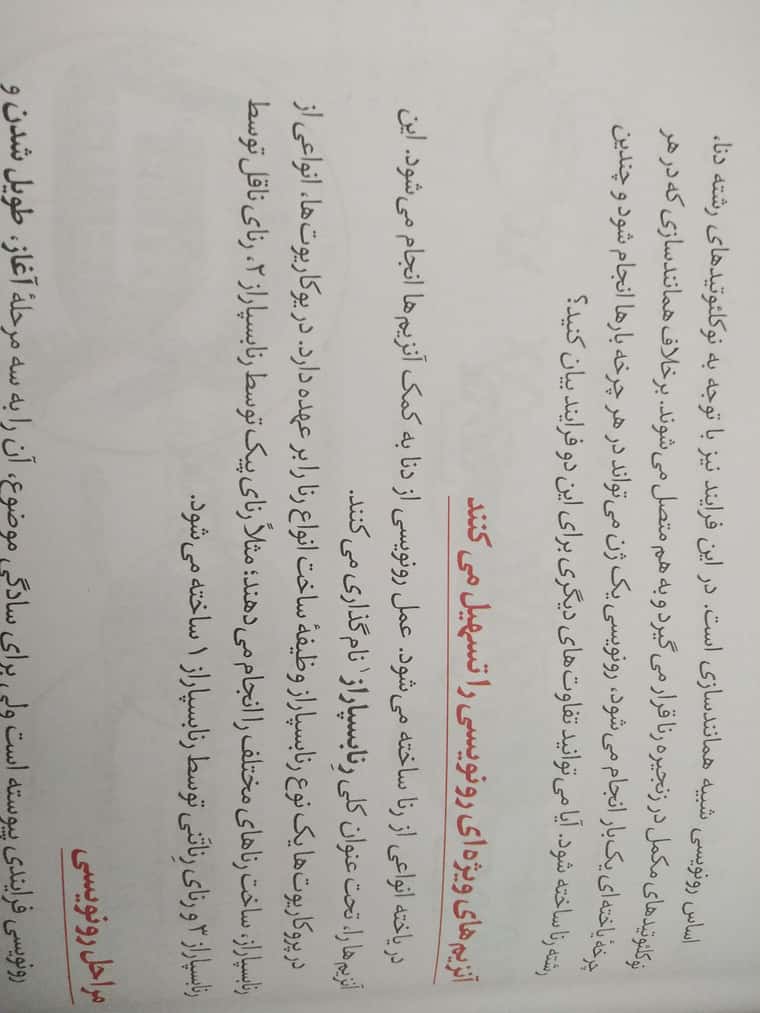 اساس رونویسی شبیه همانندسازی است. در این فرایند نیز با توجه به نوکلئوتیدهای رشته دنا،
نوکلئوتیدهای مکمل در زنجیره رنا قرار می گیرد و به هم متصل می شوند. برخلاف همانندسازی که در هر
چرخهٔ یاخته ای یک بار انجام می شود، رونویسی یک ژن می تواند در هر چرخه بارها انجام شود و چندین
رشته رنا ساخته شود. آیا می توانید تفاوت های دیگری برای این دو فرایند بیان کنید؟
آنزیم های ویژه ای رونویسی را تسهیل می کنند
در یاخته انواعی از رنا ساخته می شود. عمل رونویسی از دنا به کمک آنزیم ها انجام می شود. این
آنزیم ها را، تحت عنوان کلی رِنابسپاراز۱ نام گذاری می کنند.
در پروکاریوت ها یک نوع رنابسپاراز وظیفهٔ ساخت انواع رنا را بر عهده دارد. در یوکاریوت ها، انواعی از
رنابسپاراز، ساخت رناهای مختلف را انجام می دهند؛ مثلاً رنای پیک توسط رنابسپاراز ۲، رنای ناقل توسط
رنابسپاراز ۳ و رنای رِناتَنی توسط رنابسپاراز ۱ ساخته می شود.
مراحل رونویسی
رونویسی فرایندی پیوسته است ولی برای سادگی موضوع، آن را به سه مرحلهٔ آغاز، طویل شدن و